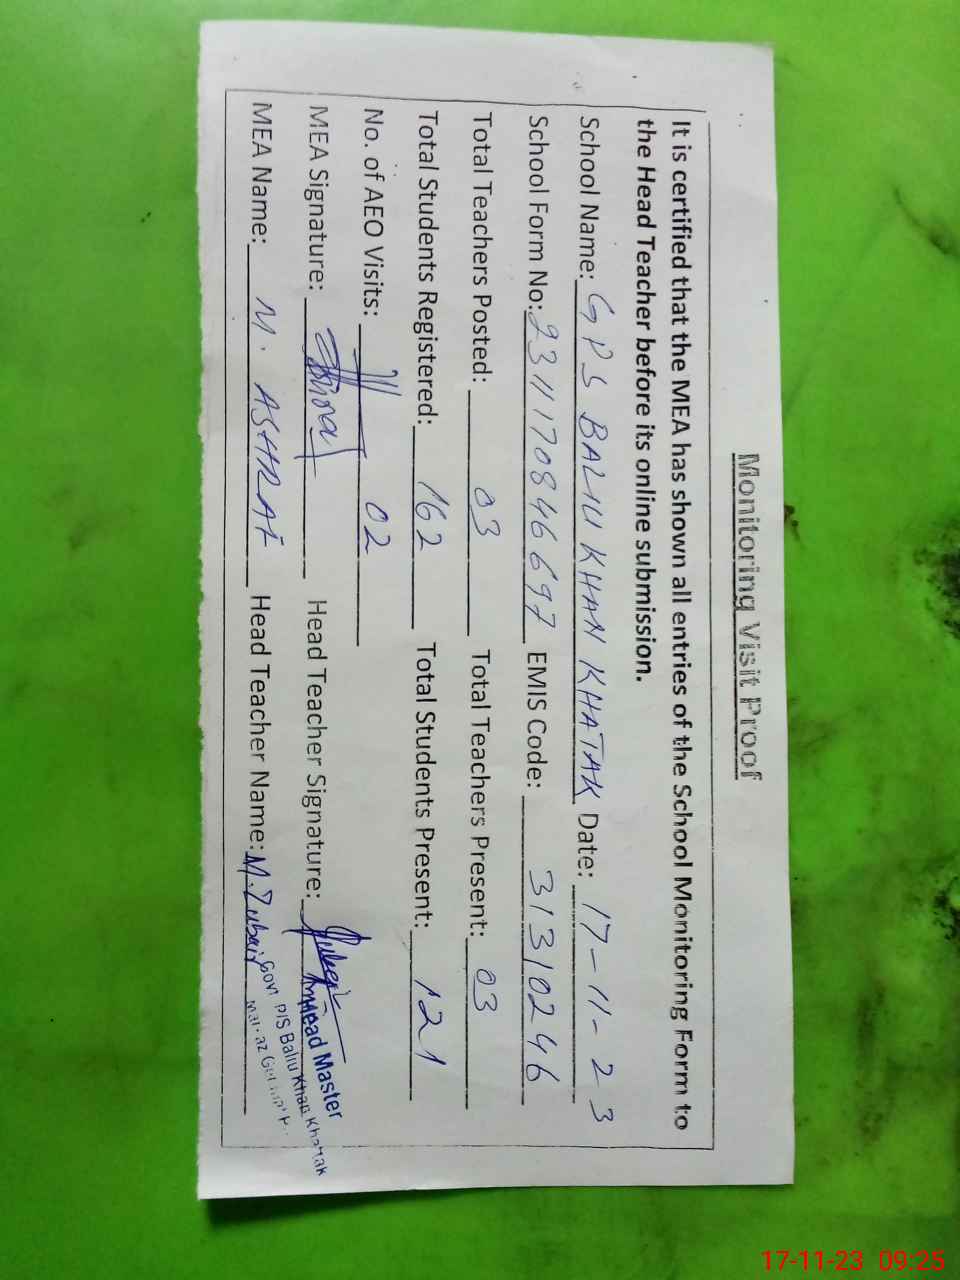 Monitoring Visit Proof
It is certified that the MEA has shown all entries of the School Monitoring Form to
the Head Teacher before its online submission.
School Name: GPS BALIU KHAN KHATAK Date: 17-11-23
School Form No: 231117084 6697 EMIS Code: 31310246
Total Teachers Posted: 03 Total Teachers Present: 03
Total Students Registered: 162 Total Students Present: 121
No. of AEO Visits: 02
MEA Signature: Head Teacher Signature:
Head Master
MEA Name: M. ASHRAF Head Teacher Name: M. Zubair
Govt P/S Baliu Khan Khattak
17-11-23 09:25